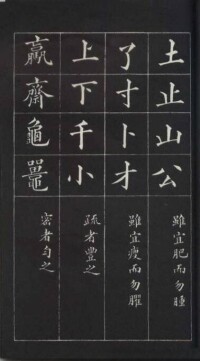 土止山公
雖宜肥而勿腫
了寸卜才
雖宜瘦而勿臞
上下千小
疏者豐之
羸齋龜鼍
密者勻之